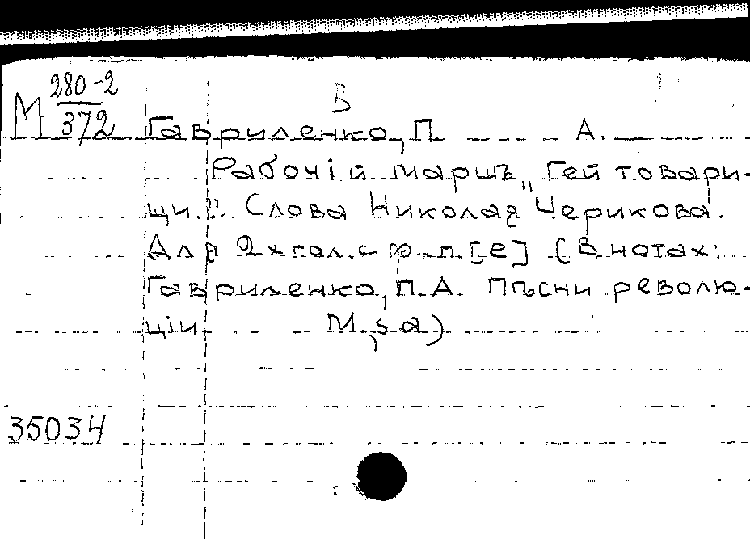 М 280-2
372
В
Гавриленко, П. А.
Рабочій маршъ „Гей товари-
щи". Слова Николая Черикова.
Для 2х гол. с ф.-п. [е] (В нотах:
Гавриленко, П. А. Пѣсни револю-
ціи М, s a)
35034